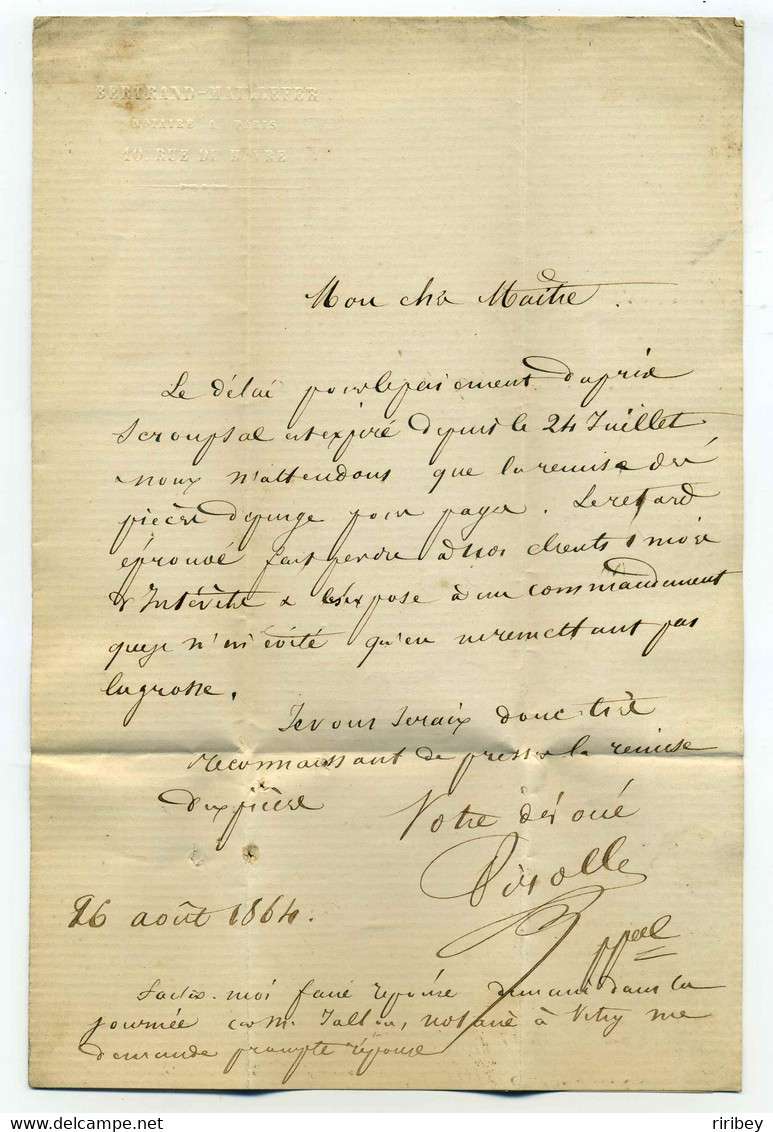 BERTRAND-MAILLEFER
NOTAIRE A PARIS
10, RUE DU HAVRE
Mon cher Maître.
Le délai pour le paiement du prix
est expiré depuis le 24 Juillet
nous n'attendons que la remise des
pièces de purge pour payer. Le retard
éprouvé fait perdre à nos clients 1 mois
d'Intérêts & les expose à un commandement
que je n'ai évité qu'en ne remettant pas
la grosse.
Je vous serais donc très
reconnaissant de presser la remise
des pièces
Votre dévoué
ppal
26 août 1864.
Faites-moi faire réponse demain dans la
journée car M. notaire à Vitry me
demande prompte réponse
riribey